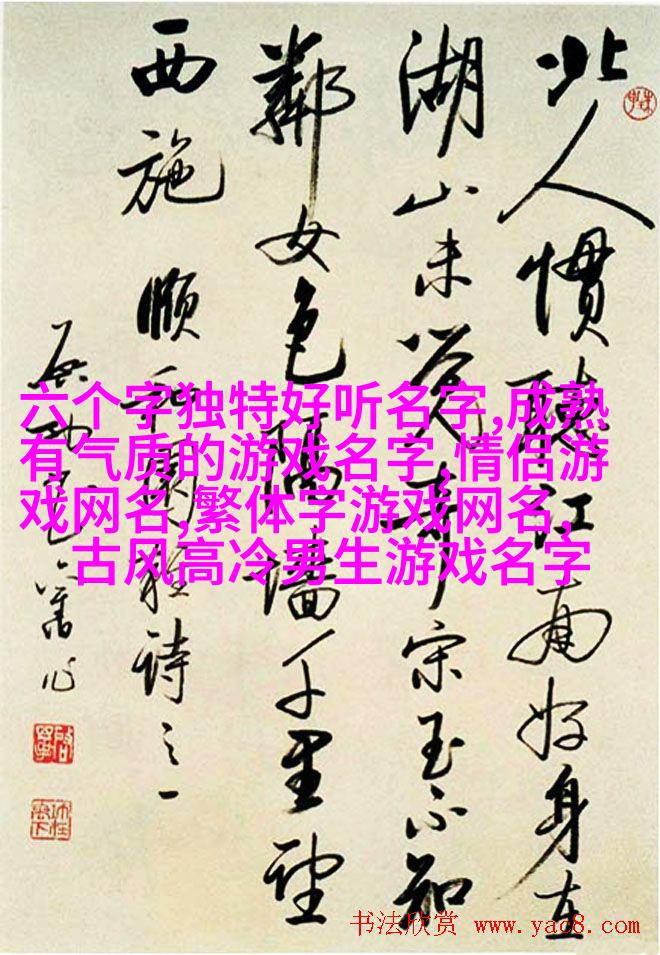 北人慣聽江南好身在
湖山未覺奇宋玉不知
鄰女色隔墻千里望
西施 頤和園雜詩之一
启功舊作
六个字独特好听名字,成熟
有气质的游戏名字,情侣游
戏网名,繁体字游戏网名,
古风高冷男生游戏名字
书法欣赏 www.yac8.com